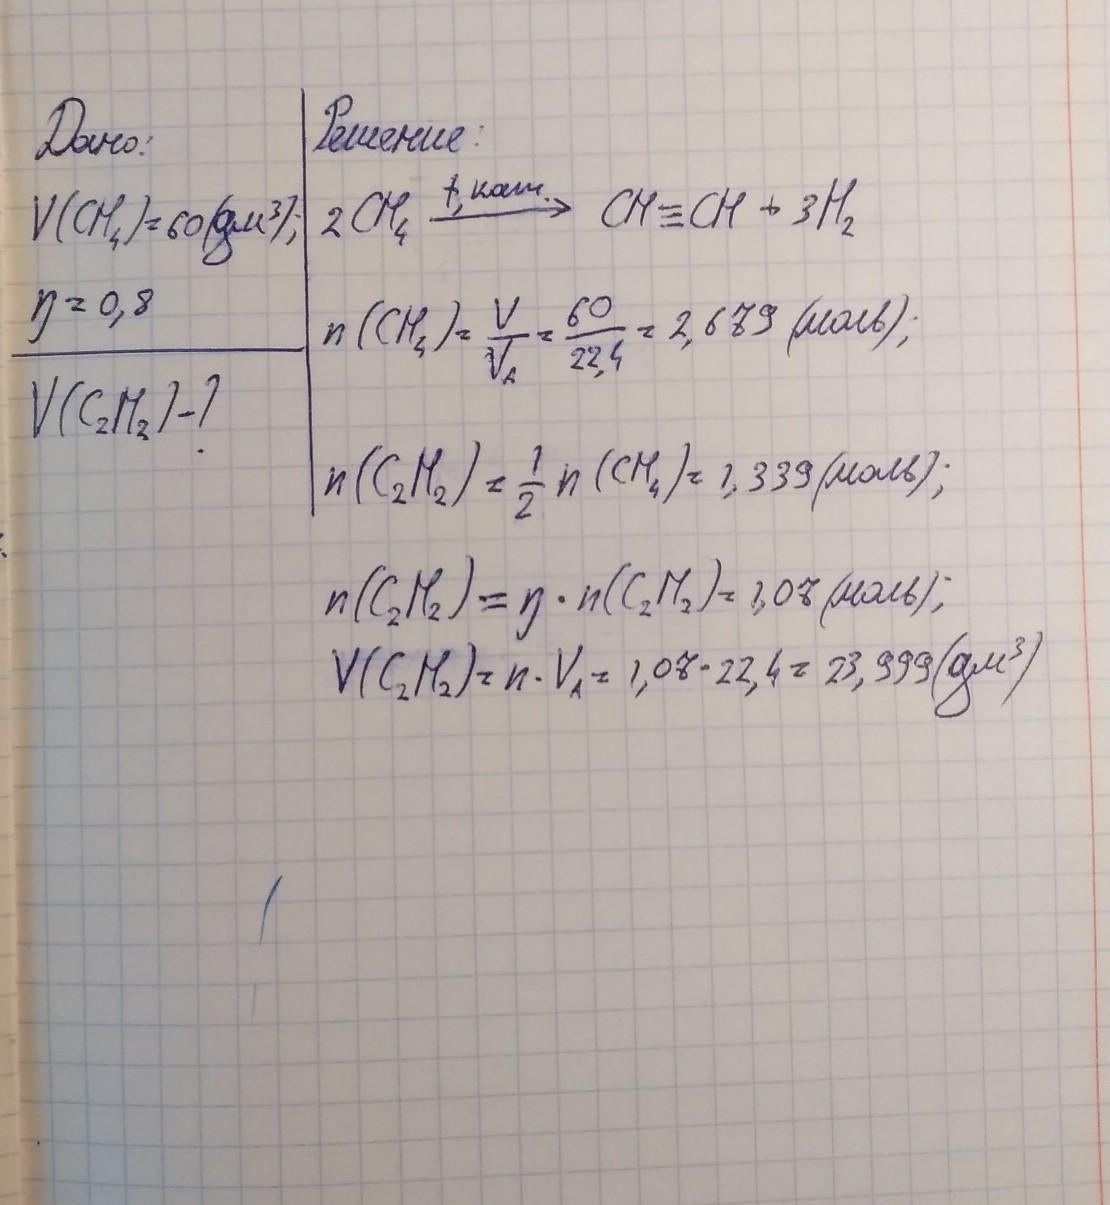 Дано:
V(CH₄)=60(дм³);
η=0,8
V(C₂H₂)-?
Решение:
2CH₄ t, кат. → CH≡CH + 3H₂
n(CH₄)= V/V_A = 60/22,4 = 2,679 (моль);
n(C₂H₂)= 1/2 n(CH₄)= 1,339(моль);
n(C₂H₂)= η · n(C₂H₂)= 1,07(моль);
V(C₂H₂)= n · V_A = 1,07 · 22,4 = 23,999(дм³)